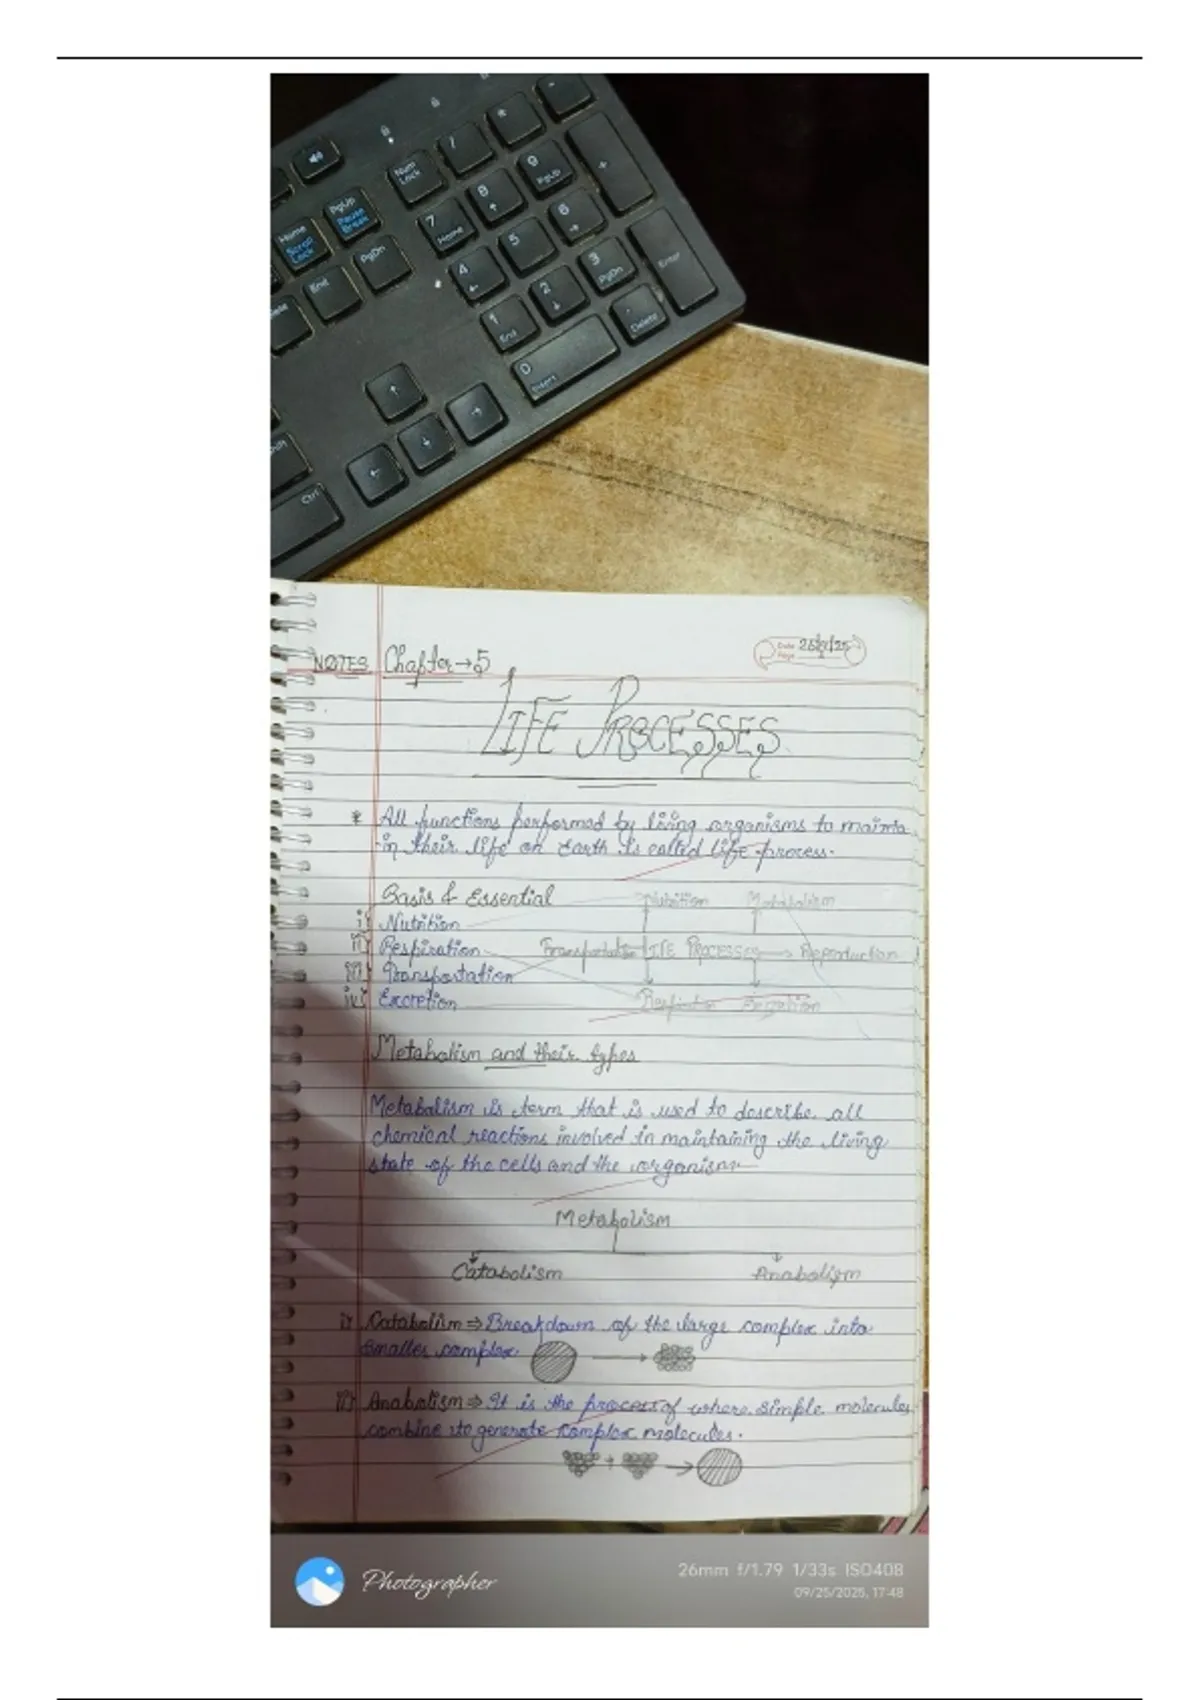 Num Lock
/
*
-
7 Home
8
9 PgUp
+
4
5
6
1 End
2
3 PgDn
Enter
0 Insert
. Delete
Home Scroll Lock
PgUp Pause Break
End
PgDn
Ctrl
NOTES Chapter → 5
Date
Page
LIFE PROCESSES
* All functions performed by living organisms to mainta
-in their life on Earth is called life process.
Basis & Essential
Nutrition Metabolism
i) Nutrition
ii) Respiration
Transportation LIFE PROCESSES Reproduction
iii) Transportation
iv) Excretion
Metabolism and their types
Metabolism is term that is used to describe all
chemical reactions involved in maintaining the living
state of the cells and the organism
Metabolism
Catabolism Anabolism
i) Catabolism ⇒ Breakdown of the large complex into
smaller complex
ii) Anabolism ⇒ It is the process of where simple molecules
combine to generate complex molecules.
+
Photographer
26mm f/1.79 1/33s ISO408
09/25/2025, 17:48